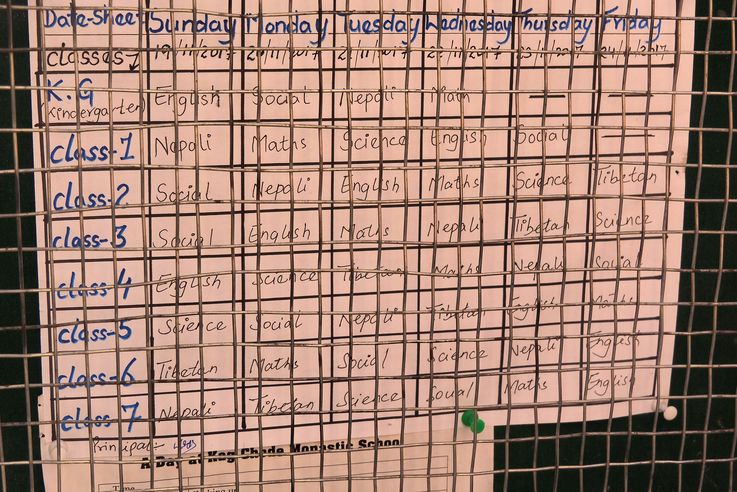 Date-Sheet Sunday Monday Tuesday Wednesday Thursday Friday
classes 19/11/2017 20/11/2017 21/11/2017 22/11/2017 23/11/2017 24/11/2017
K.G (kindergarten) English Social Nepali Math — —
class-1 Nepali Maths Science English Social —
class-2 Social Nepali English Maths Science Tibetan
class-3 Social English Maths Nepali Tibetan Science
class-4 English Science Tibetan Maths Nepali Social
class-5 Science Social Nepali Tibetan English Maths
class-6 Tibetan Maths Social Science Nepali English
class-7 Nepali Tibetan Science Social Maths English
Principal:-
A Day at Kag Chode Monastic School
Time